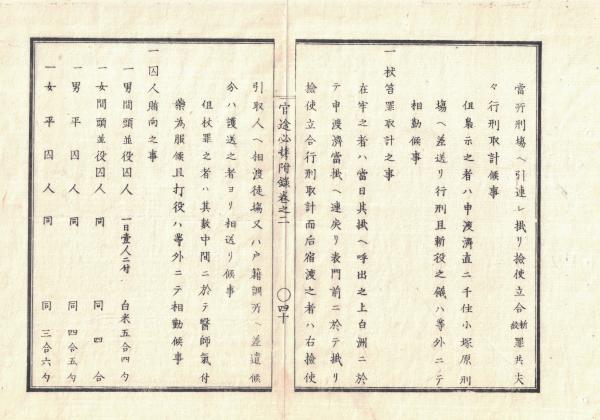 當所刑場ヘ引連レ掛リ撿使立合斬絞罪共夫
々行刑取計候事
但梟示之者ハ申渡濟直ニ千住小塚原刑
場ヘ差送リ行刑且斬役之儀ハ等外ニテ
相勤候事
一杖笞罪取計之事
在牢之者ハ當日其掛ヘ呼出之上白洲ニ於
テ申渡濟當掛ヘ連戾リ表門前ニ於テ掛リ
撿使立合行刑取計而后宿渡之者ハ右撿使
官途必携附錄卷之二
〇四十
引取人ヘ相渡徒塲又ハ戸籍調所ヘ差遣候
分ハ護送之者ヨリ相送リ候事
但杖罪之者ハ其數中間ニ於テ醫師氣付
藥為服候且打役ハ等外ニテ相勤候事
一囚人賄向之事
一男間頭並役囚人 一日壹人ニ付 白米五合四勺
一女間頭並役囚人 同 同 四合
一男平囚人 同 同 四合五勺
一女平囚人 同 同 三合六勺